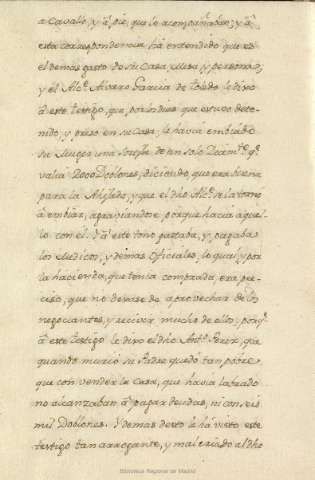 a cavallo, y a pie, que le acompañaban; y a
esta correspondencia ha entendido que es
el demas gasto de su Casa, Mesa y personas;
y el Alc.e Alvaro Garcia de Toledo le dixo
à este testigo, que por los dias que estuvo dete-
nido, y preso en su casa, le havia embiado
su Muger una joya de un solo Diam.te q.e
valia 2000 Doblones, diciendo que era buena
para la Ahijada, y que el dho Alc.e se la torno
à embiar, agraviandose porque hacia aque-
llo con el. Y à este tono gastaba, y pagaba
los Medicos, y demas Oficiales, lo qual y por
la hacienda, que tenia comprada, era pre-
ciso, que no dexase de aprovechar de los
negociantes, y recivir mucho de ellos: porq.e
à este testigo le dixo el dho Ant.o Perez, que
quando murio su Padre quedó tan pobre
que con vender la Casa, que havia labrado
no alcanzaban à pagar deudas, ni con seis
mil Doblones. Y demas desto la há visto este
testigo tan arrogante, y mal criado al dho
Biblioteca Regional de Madrid